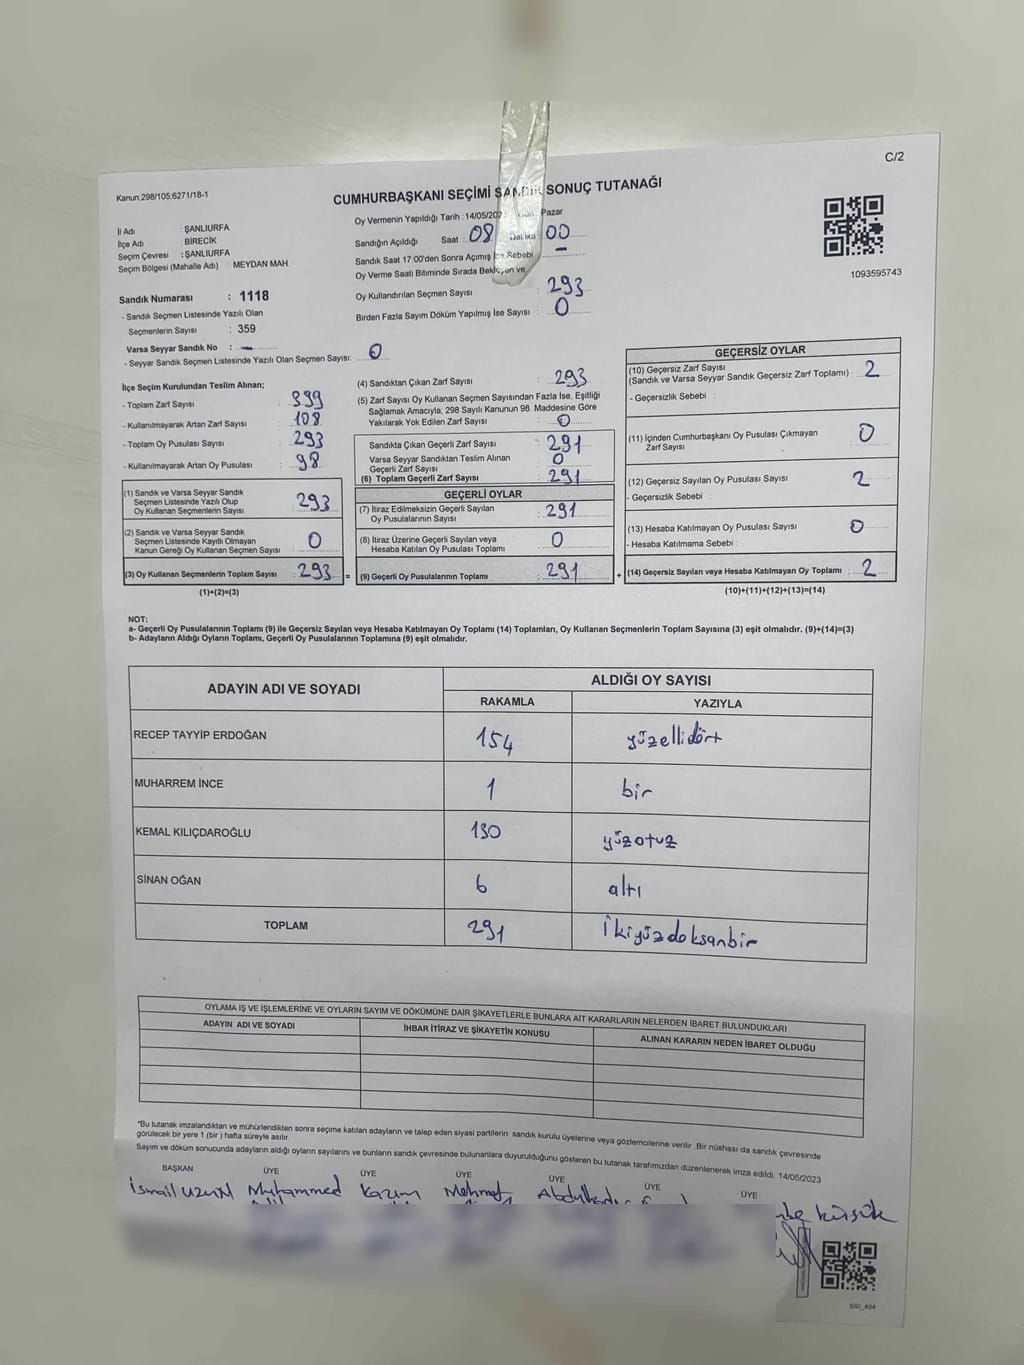 C/2
Kanun:298/105;6271/18-1
CUMHURBAŞKANI SEÇİMİ SANDIK SONUÇ TUTANAĞI
İl Adı : ŞANLIURFA
İlçe Adı : BİRECİK
Seçim Çevresi : ŞANLIURFA
Seçim Bölgesi (Mahalle Adı) : MEYDAN MAH.
Sandık Numarası : 1118
- Sandık Seçmen Listesinde Yazılı Olan
Seçmenlerin Sayısı : 359
Varsa Seyyar Sandık No : -
- Seyyar Sandık Seçmen Listesinde Yazılı Olan Seçmen Sayısı: 0
Oy Vermenin Yapıldığı Tarih : 14/05/202 Gün: Pazar
Sandığın Açıldığı Saat 08 Dakika 00
Sandık Saat 17:00'den Sonra Açımış İse Sebebi -
Oy Verme Saati Bitiminde Sırada Bekleyen ve
Oy Kullandırılan Seçmen Sayısı : 293
Birden Fazla Sayım Döküm Yapılmış İse Sayısı : 0
1093595743
İlçe Seçim Kurulundan Teslim Alınan;
- Toplam Zarf Sayısı : 399
- Kullanılmayarak Artan Zarf Sayısı : 108
- Toplam Oy Pusulası Sayısı : 293
- Kullanılmayarak Artan Oy Pusulası : 98
(1) Sandık ve Varsa Seyyar Sandık
Seçmen Listesinde Yazılı Olup
Oy Kullanan Seçmenlerin Sayısı : 293
(2) Sandık ve Varsa Seyyar Sandık
Seçmen Listesinde Kayıtlı Olmayan
Kanun Gereği Oy Kullanan Seçmen Sayısı : 0
(3) Oy Kullanan Seçmenlerin Toplam Sayısı : 293
(1)+(2)=(3)
(4) Sandıktan Çıkan Zarf Sayısı : 293
(5) Zarf Sayısı Oy Kullanan Seçmen Sayısından Fazla İse, Eşitliği
Sağlamak Amacıyla; 298 Sayılı Kanunun 98. Maddesine Göre
Yakılarak Yok Edilen Zarf Sayısı : 0
Sandıkta Çıkan Geçerli Zarf Sayısı : 291
Varsa Seyyar Sandıktan Teslim Alınan
Geçerli Zarf Sayısı : 0
(6) Toplam Geçerli Zarf Sayısı : 291
GEÇERLİ OYLAR
(7) İtiraz Edilmeksizin Geçerli Sayılan
Oy Pusulalarının Sayısı : 291
(8) İtiraz Üzerine Geçerli Sayılan veya
Hesaba Katılan Oy Pusulası Toplamı : 0
= (9) Geçerli Oy Pusulalarının Toplamı : 291
GEÇERSİZ OYLAR
(10) Geçersiz Zarf Sayısı
(Sandık ve Varsa Seyyar Sandık Geçersiz Zarf Toplamı) : 2
- Geçersizlik Sebebi :
(11) İçinden Cumhurbaşkanı Oy Pusulası Çıkmayan
Zarf Sayısı : 0
(12) Geçersiz Sayılan Oy Pusulası Sayısı : 2
- Geçersizlik Sebebi :
(13) Hesaba Katılmayan Oy Pusulası Sayısı : 0
- Hesaba Katılmama Sebebi :
+ (14) Geçersiz Sayılan veya Hesaba Katılmayan Oy Toplamı : 2
(10)+(11)+(12)+(13)=(14)
NOT:
a- Geçerli Oy Pusulalarının Toplamı (9) ile Geçersiz Sayılan veya Hesaba Katılmayan Oy Toplamı (14) Toplamları, Oy Kullanan Seçmenlerin Toplam Sayısına (3) eşit olmalıdır. (9)+(14)=(3)
b- Adayların Aldığı Oyların Toplamı, Geçerli Oy Pusulalarının Toplamına (9) eşit olmalıdır.
ADAYIN ADI VE SOYADI
ALDIĞI OY SAYISI
RAKAMLA YAZIYLA
RECEP TAYYİP ERDOĞAN 154 yüzellidört
MUHARREM İNCE 1 bir
KEMAL KILIÇDAROĞLU 130 yüzotuz
SİNAN OĞAN 6 altı
TOPLAM 291 İkiyüzdoksanbir
OYLAMA İŞ VE İŞLEMLERİNE VE OYLARIN SAYIM VE DÖKÜMÜNE DAİR ŞİKAYETLERLE BUNLARA AİT KARARLARIN NELERDEN İBARET BULUNDUKLARI
ADAYIN ADI VE SOYADI İHBAR İTİRAZ VE ŞİKAYETİN KONUSU ALINAN KARARIN NEDEN İBARET OLDUĞU
*Bu tutanak imzalandıktan ve mühürlendikten sonra seçime katılan adayların ve talep eden siyasi partilerin sandık kurulu üyelerine veya gözlemcilerine verilir. Bir nüshası da sandık çevresinde
görülecek bir yere 1 (bir) hafta süreyle asılır.
Sayım ve döküm sonucunda adayların aldığı oyların sayılarını ve bunların sandık çevresinde bulunanlara duyurulduğunu gösteren bu tutanak tarafımızdan düzenlenerek imza edildi. 14/05/2023
BAŞKAN ÜYE ÜYE ÜYE ÜYE ÜYE ÜYE
İsmail Uzun Muhammed Kazım Mehmet Abdulkadir
küçük
SSI_404